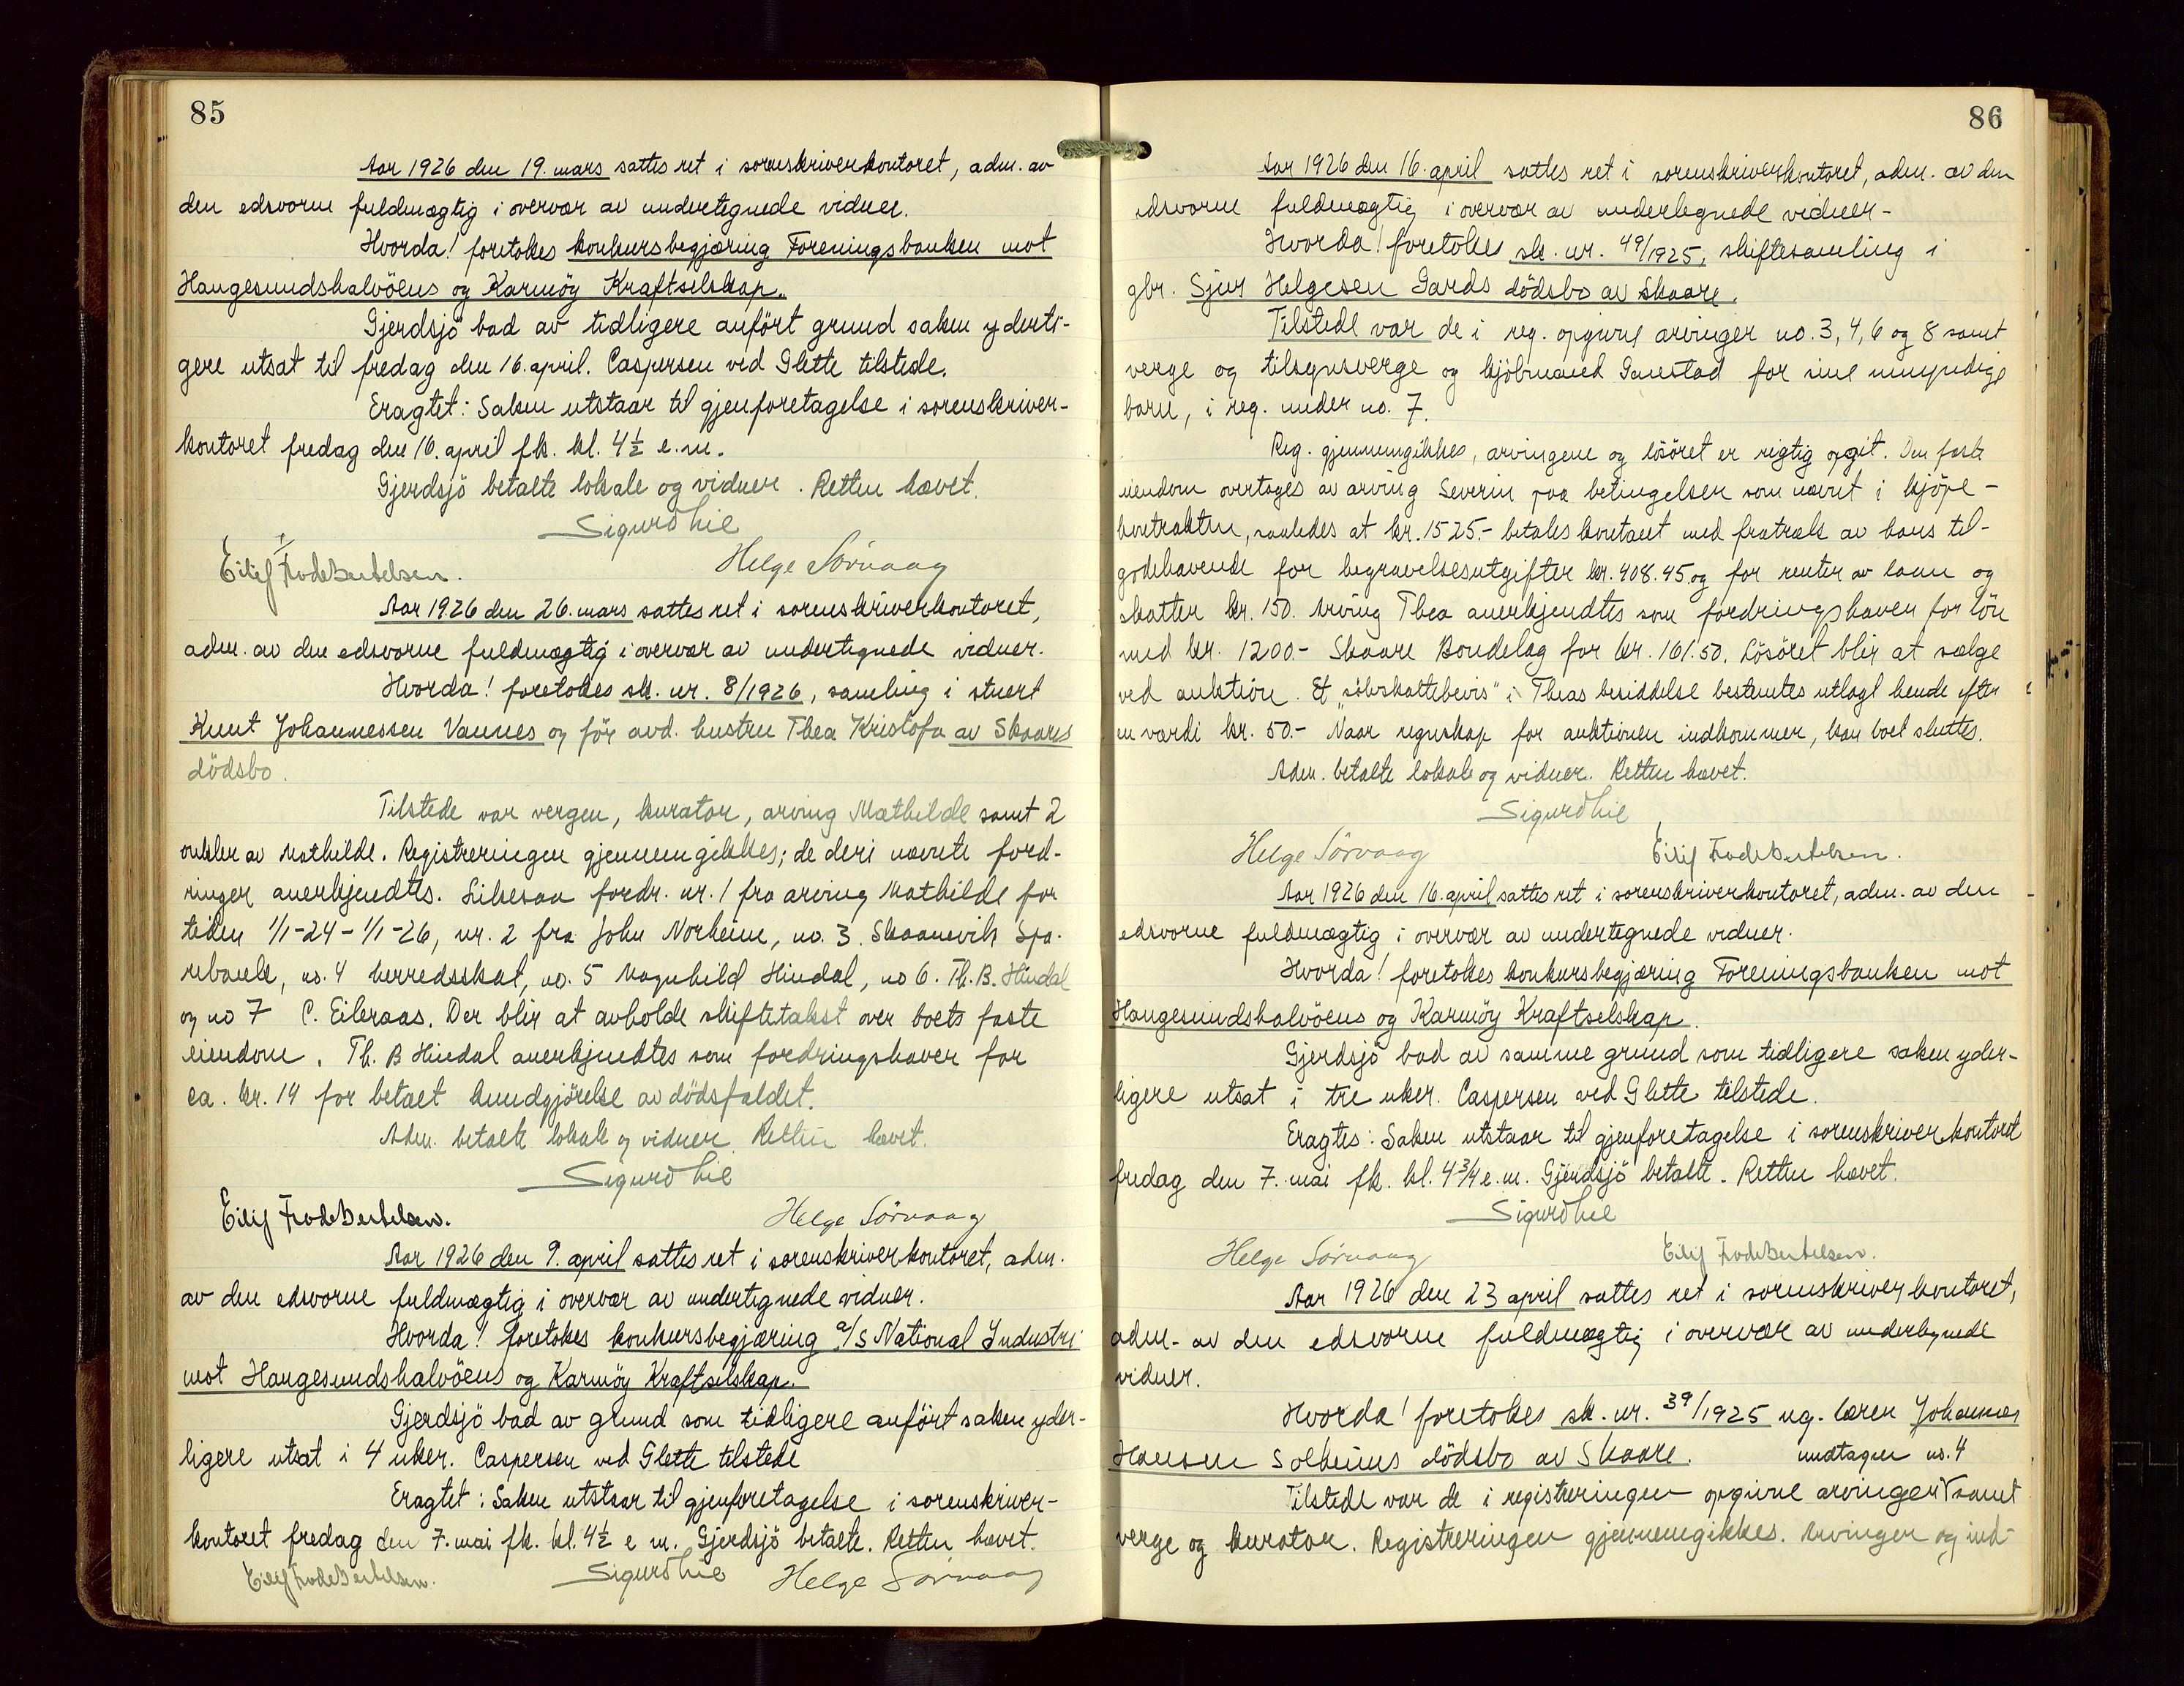 85
Aar 1926 den 19. mars sattes ret i sorenskriverkontoret, adm. av
den edsvorne fuldmægtig i overvær av undertegnede vidner.
Hvorda! foretokes konkursbegjæring Foreningsbanken mot
Haugesundshalvöens og Karmöy Kraftselskap.
Gjerdsjö bad av tidligere anfört grund saken yderli-
gere utsat til fredag den 16. april. Caspersen ved Glette tilstede.
Eragtet: Saken utstaar til gjenforetagelse i sorenskriver-
kontoret fredag den 16. april fk. kl. 4½ e.m.
Gjerdsjö betalte lokale og vidner. Retten hævet.
Sigurd Lie
Eilif Frode Bertelsen. Helge Sörvaag
Aar 1926 den 26. mars sattes ret i sorenskriverkontoret,
adm. av den edsvorne fuldmægtig i overvær av undertegnede vidner.
Hvorda! foretokes sk. nr. 8/1926, samling i stuert
Knut Johannessen Vannes og för avd. hustru Thea Kristofa av Skaares
dödsbo.
Tilstede var vergen, kurator, arving Mathilde samt 2
onkler av Mathilde. Registreringen gjennemgikkes; de deri nævnte ford-
ringer anerkjendtes. Likesaa fordr. nr. 1 fra arving Mathilde for
tiden 1/1-24 - 1/1-26, nr. 2 fra John Norheim, no. 3. Skaanevik Spa-
rebank, no. 4 herredsskat, no. 5 Magnhild Hindal, no 6. Th. B. Hindal
og no 7 C. Eikeraas. Der blir at avholde skiftetakst over boets faste
eiendom. Th. B Hindal anerkjendtes som fordringshaver for
ca. kr. 14 for betalt kundgjörelse av dödsfaldet.
Adm. betalte lokale og vidner. Retten hævet.
Sigurd Lie
Eilif Frode Bertelsen. Helge Sörvaag
Aar 1926 den 9. april sattes ret i sorenskriverkontoret, adm.
av den edsvorne fuldmægtig i overvær av undertegnede vidner.
Hvorda! foretokes konkursbegjæring a/s National Industri
mot Haugesundshalvöens og Karmöy Kraftselskap.
Gjerdsjö bad av grund som tidligere anfört saken yder-
ligere utsat i 4 uker. Caspersen ved Glette tilstede
Eragtet: Saken utstaar til gjenforetagelse i sorenskriver-
kontoret fredag den 7. mai fk. kl. 4½ e m. Gjerdsjö betalte. Retten hævet.
Eilif Frode Bertelsen. Sigurd Lie Helge Sörvaag
86
Aar 1926 den 16. april sattes ret i sorenskriverkontoret, adm. av den
edsvorne fuldmægtig i overvær av undertegnede vidner-
Hvorda! foretokes sk. nr. 49/1925, skiftesamling i
gbr. Sjur Helgesen Gards dödsbo av Skaare.
Tilstede var de i reg. opgivne arvinger no. 3, 4, 6 og 8 samt
verge og tilsynsverge og kjöbmand for sine umyndige
barn, i reg. under no. 7.
Reg. gjennemgikkes, arvingene og lösöret er rigtig opgit. Den faste
eiendom overtages av arving Severin paa betingelser som nævnt i kjöpe-
kontrakten, saaledes at kr. 1525.- betales kontant med fratræk av hans til-
godehavende for begravelsesutgifter kr. 408.45 og for renter av laan og
skatter kr. 150. Arving Thea anerkjendtes som fordringshaver for lön
med kr. 1200.- Skaare Bondelag for kr. 161.50. Lösöret blir at sælge
ved auktion. Et "sölvskattebevis" i Theas besiddelse bestemtes utlagt hende efter
en værdi kr. 50.- Naar regnskap for auktionen indkommer, kan boet sluttes.
Adm. betalte lokale og vidner. Retten hævet.
Sigurd Lie
Helge Sörvaag Eilif Frode Bertelsen.
Aar 1926 den 16. april sattes ret i sorenskriverkontoret, adm. av den
edsvorne fuldmægtig i overvær av undertegnede vidner.
Hvorda! foretokes konkursbegjæring Foreningsbanken mot
Haugesundshalvöens og Karmöy Kraftselskap.
Gjerdsjö bad av samme grund som tidligere saken yder-
ligere utsat i tre uker. Caspersen ved Glette tilstede.
Eragtes: Saken utstaar til gjenforetagelse i sorenskriverkontoret
fredag den 7. mai fk. kl. 4 3/4 e.m. Gjerdsjö betalte. Retten hævet.
Sigurd Lie
Helge Sörvaag Eilif Frode Bertelsen.
Aar 1926 den 23 april sattes ret i sorenskriverkontoret,
adm. av den edsvorne fuldmægtig i overvær av undertegnede
vidner.
Hvorda! foretokes sk. nr. 39/1925 Johannes
Hansen Solheims dödsbo av Skaare. undtagen no. 4
Tilstede var de i registreringen opgivne arvinger samt
verge og kurator. Registreringen gjennemgikkes. Arvinger og ind-